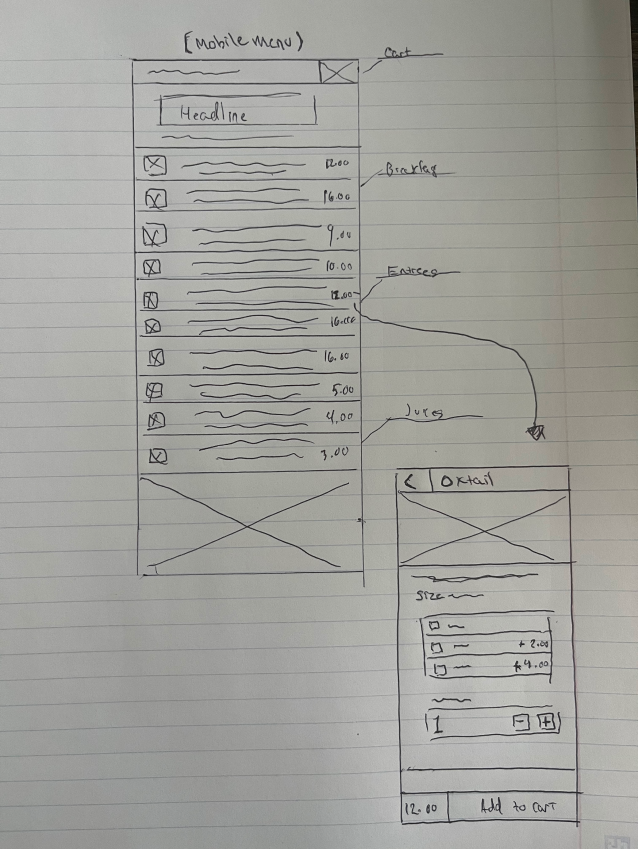 [Mobile menu)
Cart
Headline
12.00
16.00
9.00
10.00
Entrees
12.00
16.00
16.00
5.00
4.00
3.00
< Oxtail
Size
+ 2.00
+ 4.00
1 - +
12.00 Add to cart